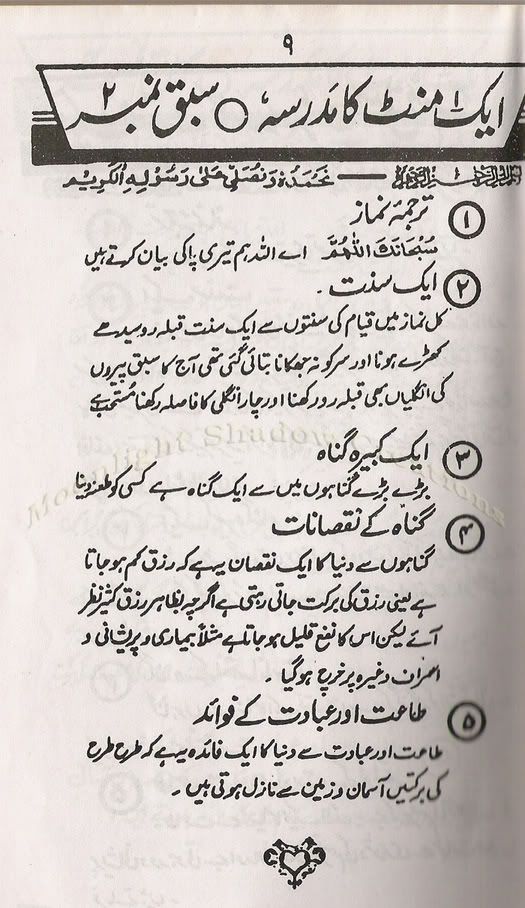 ۹
ایک ۱ منٹ کا مدرسہ ○ سبق نمبر ۲
نحمدہ و نصلی علی رسولہ الکریم
۱ ترجمۂ نماز
سُبْحَانَكَ اللّٰهُمَّ اے اللہ ہم تیری پاکی بیان کرتے ہیں
۲ ایک سنت ۔
کل نماز میں قیام کی سنتوں سے ایک سنت قبلہ رو سیدھے
کھڑے ہونا اور سر کو نہ جھکانا بتائی گئی تھی آج کا سبق پیروں
کی انگلیاں بھی قبلہ رو رکھنا اور چار انگلی کا فاصلہ رکھنا مُستحب ہے
۳ ایک کبیرہ گناہ
بڑے بڑے گناہوں میں سے ایک گناہ ہے کسی کو طعنہ دینا
۴ گناہ کے نقصانات
گناہوں سے دنیا کا ایک نقصان یہ ہے کہ رزق کم ہو جاتا
ہے یعنی رزق کی برکت جاتی رہتی ہے اگرچہ بظاہر رزق کثیر نظر
آئے لیکن اس کا نفع قلیل ہو جاتا ہے مثلاً بیماری و پریشانی و
اسراف وغیرہ پر خرچ ہو گیا ۔
۵ طاعت اور عبادت کے فوائد
طاعت اور عبادت سے دنیا کا ایک فائدہ یہ ہے کہ طرح طرح
کی برکتیں آسمان و زمین سے نازل ہوتی ہیں ۔
Moonlight Shadow